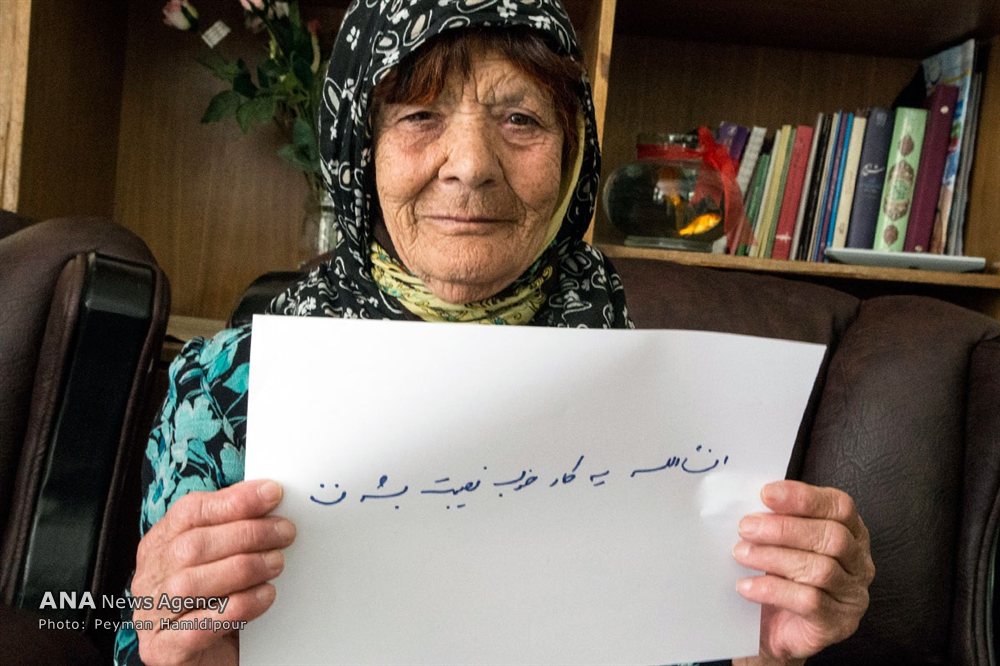 انشاالله یه کار خوب نصیبت بشه ننه
ANA News Agency
Photo: Peyman Hamidipour